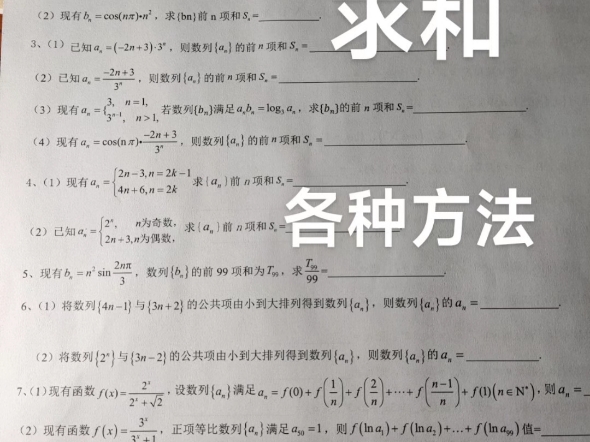 (2)现有 bₙ = cos(nπ)•n²,求{bn}前 n 项和 Sₙ =
求和
3、(1) 已知 aₙ = (−2n+3)·3ⁿ,则数列{aₙ}的前 n 项和 Sₙ =
(2) 已知 aₙ = (−2n+3)/3ⁿ,则数列{aₙ}的前 n 项和 Sₙ =
(3) 现有 aₙ = {3, n=1, 3ⁿ⁻¹, n>1, 若数列{bₙ}满足 aₙbₙ = log₃ aₙ,求{bₙ}的前 n 项和 Sₙ =
(4) 现有 aₙ = cos(nπ)•(−2n+3)/3ⁿ,则数列{aₙ}的前 n 项和 Sₙ =
4、(1) 现有 aₙ = {2n−3, n=2k−1 4n+6, n=2k 求{aₙ}前 n 项和 Sₙ =
(2) 已知 aₙ = {2ⁿ, n为奇数, 2n+3, n为偶数, 求{aₙ}前 n 项和 Sₙ
各种方法
5、现有 bₙ = n² sin (2nπ/3),数列{bₙ}的前 99 项和为 T₉₉,求 T₉₉/99 =
6、(1) 将数列{4n−1}与{3n+2}的公共项由小到大排列得到数列{aₙ},则数列{aₙ}的 aₙ =
(2) 将数列{2ⁿ}与{3n−2}的公共项由小到大排列得到数列{aₙ},则数列{aₙ}的 aₙ =
7、(1)现有函数 f(x) = 2ˣ/(2ˣ+√2),设数列{aₙ}满足 aₙ = f(0)+f(1/n)+f(2/n)+⋯+f((n−1)/n)+f(1)(n∈N*),则 aₙ =
(2) 现有函数 f(x) = 3ˣ/(3ˣ+1),正项等比数列{aₙ}满足 a₅₀ = 1,则 f(ln a₁)+f(ln a₂)+…+f(ln a₉₉)值=